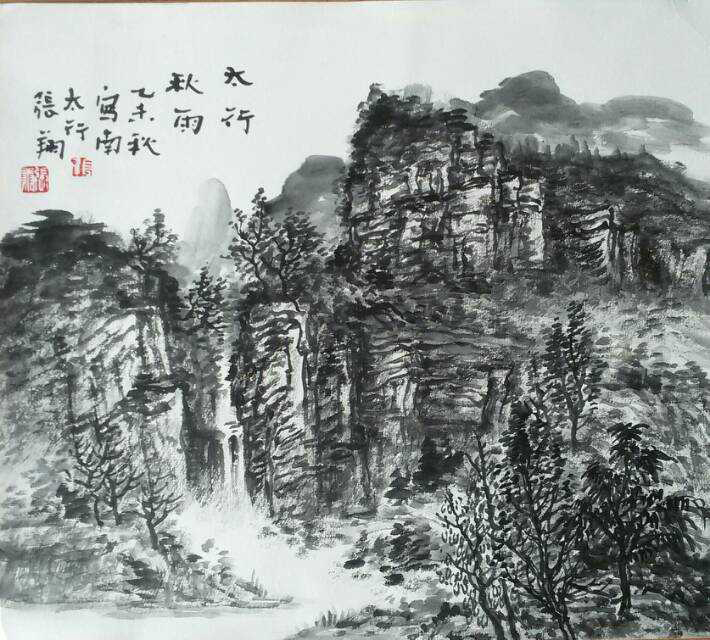 太行
秋雨
乙未秋
写南
太行
張翔